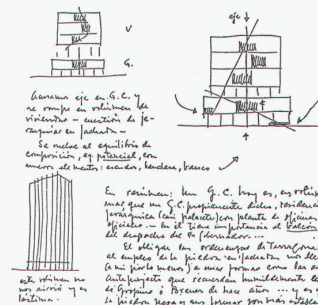 eje
V
G.
Marcamos eje en G.C. y
se rompe en volumen de
viviendas — cuestión de je-
rarquías en fachada —
Se vuelve al equilibrio de
composición, eq. potencial, con
nuevos elementos: escudos, bandera, huecos
este volumen no
nos sirvió y es
lástima.
En resumen: Un G.C. hoy es, en
más que un G.C. propiamente dicho, residencia
jerárquica (mi palacete) con planta de oficinas
oficiales — En él tiene importancia el balcón
del despacho del Gobernador...
El obligar las ordenanzas de Tarragona
al empleo de la piedra en fachada nos
(a mí por lo menos) a unas formas como las
anteproyecto que recuerdan humildemente
de Gropius o Breuer de hace años... y es
la piedra pesa y sus formas son